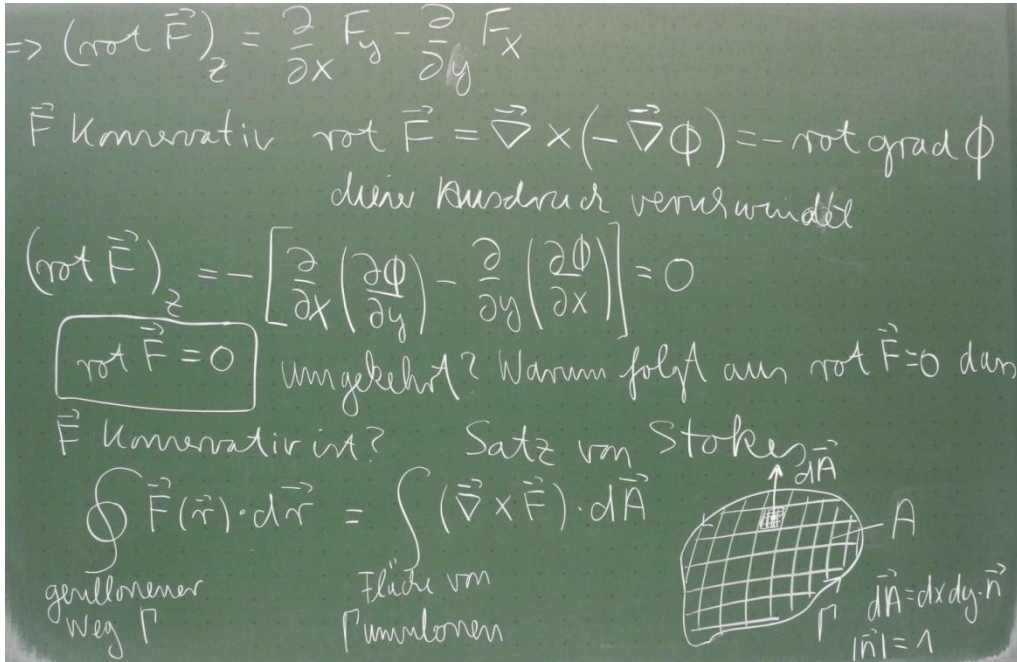 => (rot F⃗)_z = ∂/∂x F_y - ∂/∂y F_x
F⃗ Konservativ rot F⃗ = ∇⃗ × (-∇⃗ϕ) = - rot grad ϕ
dieser Ausdruck verschwindet
(rot F⃗)_z = - [∂/∂x (∂ϕ/∂y) - ∂/∂y (∂ϕ/∂x)] = 0
rot F⃗ = 0 umgekehrt? Warum folgt aus rot F⃗=0 dass
F⃗ Konservativ ist? Satz von Stokes
dA⃗
∮ F⃗(r⃗)·dr⃗ = ∫ (∇⃗ × F⃗)·dA⃗
A
geschlossener
Weg Γ
Fläche von
Γ umschlossen
Γ
dA⃗ = dxdy·n⃗
|n⃗| = 1